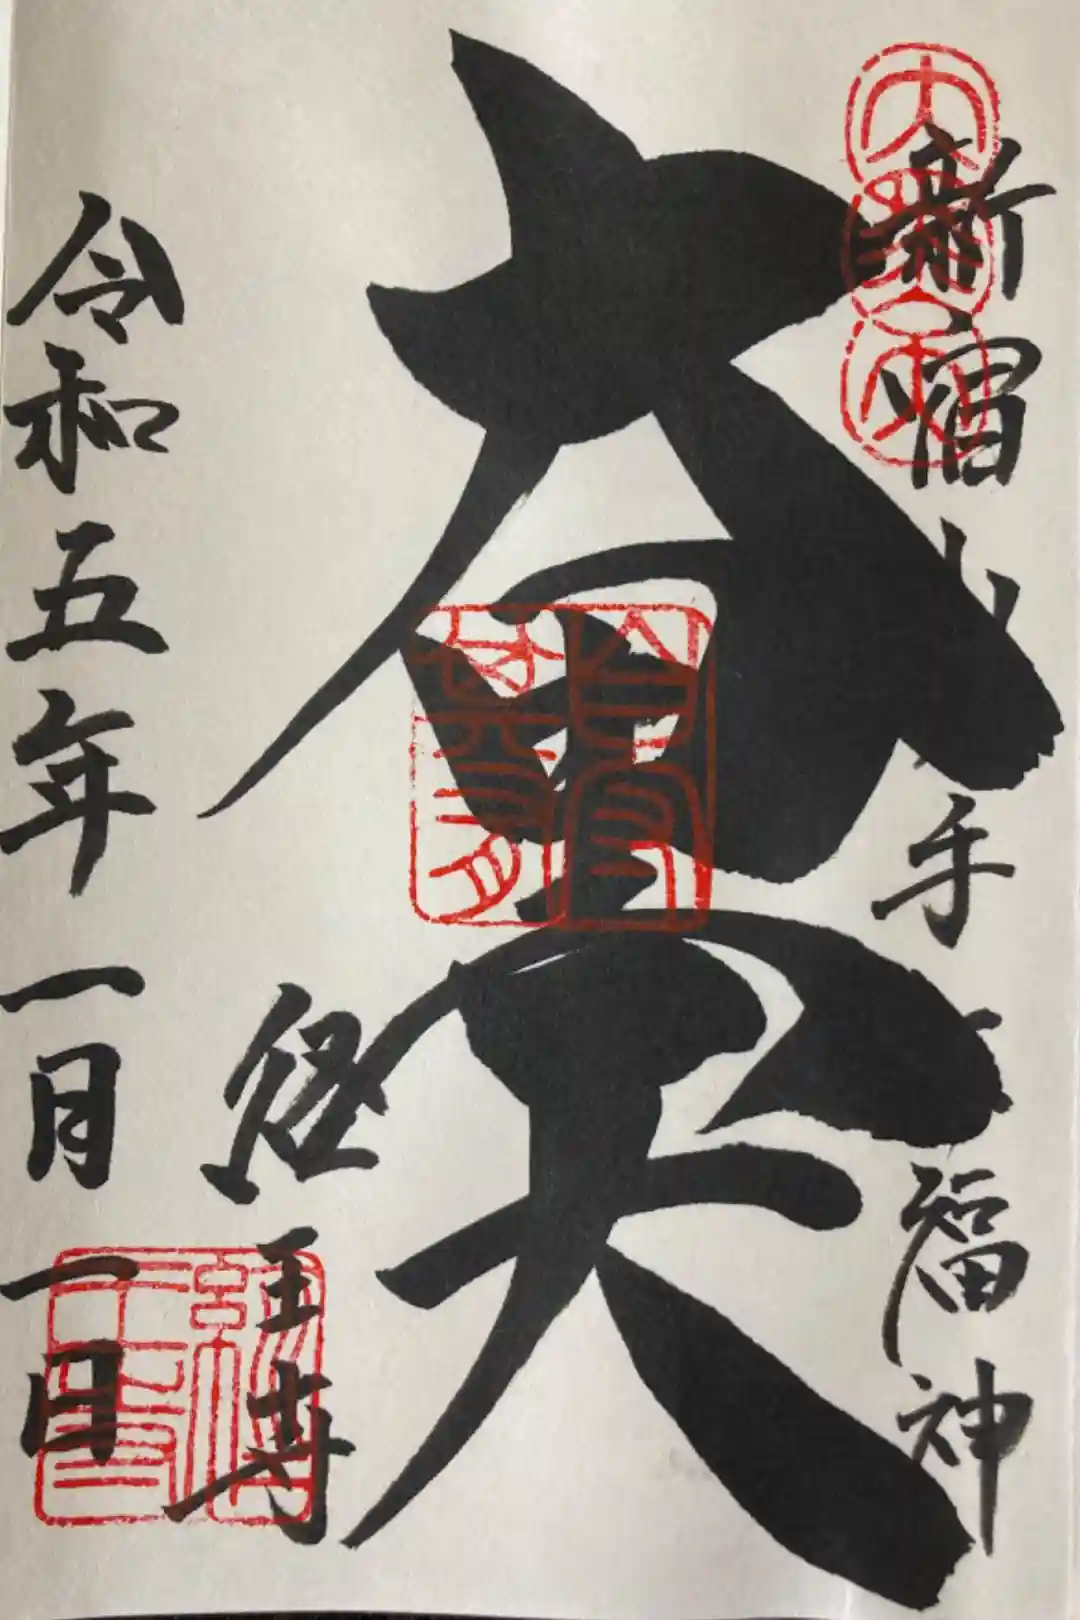 新宿山ノ手七福神
大黒天
大黒天
経王寺
令和五年一月一日